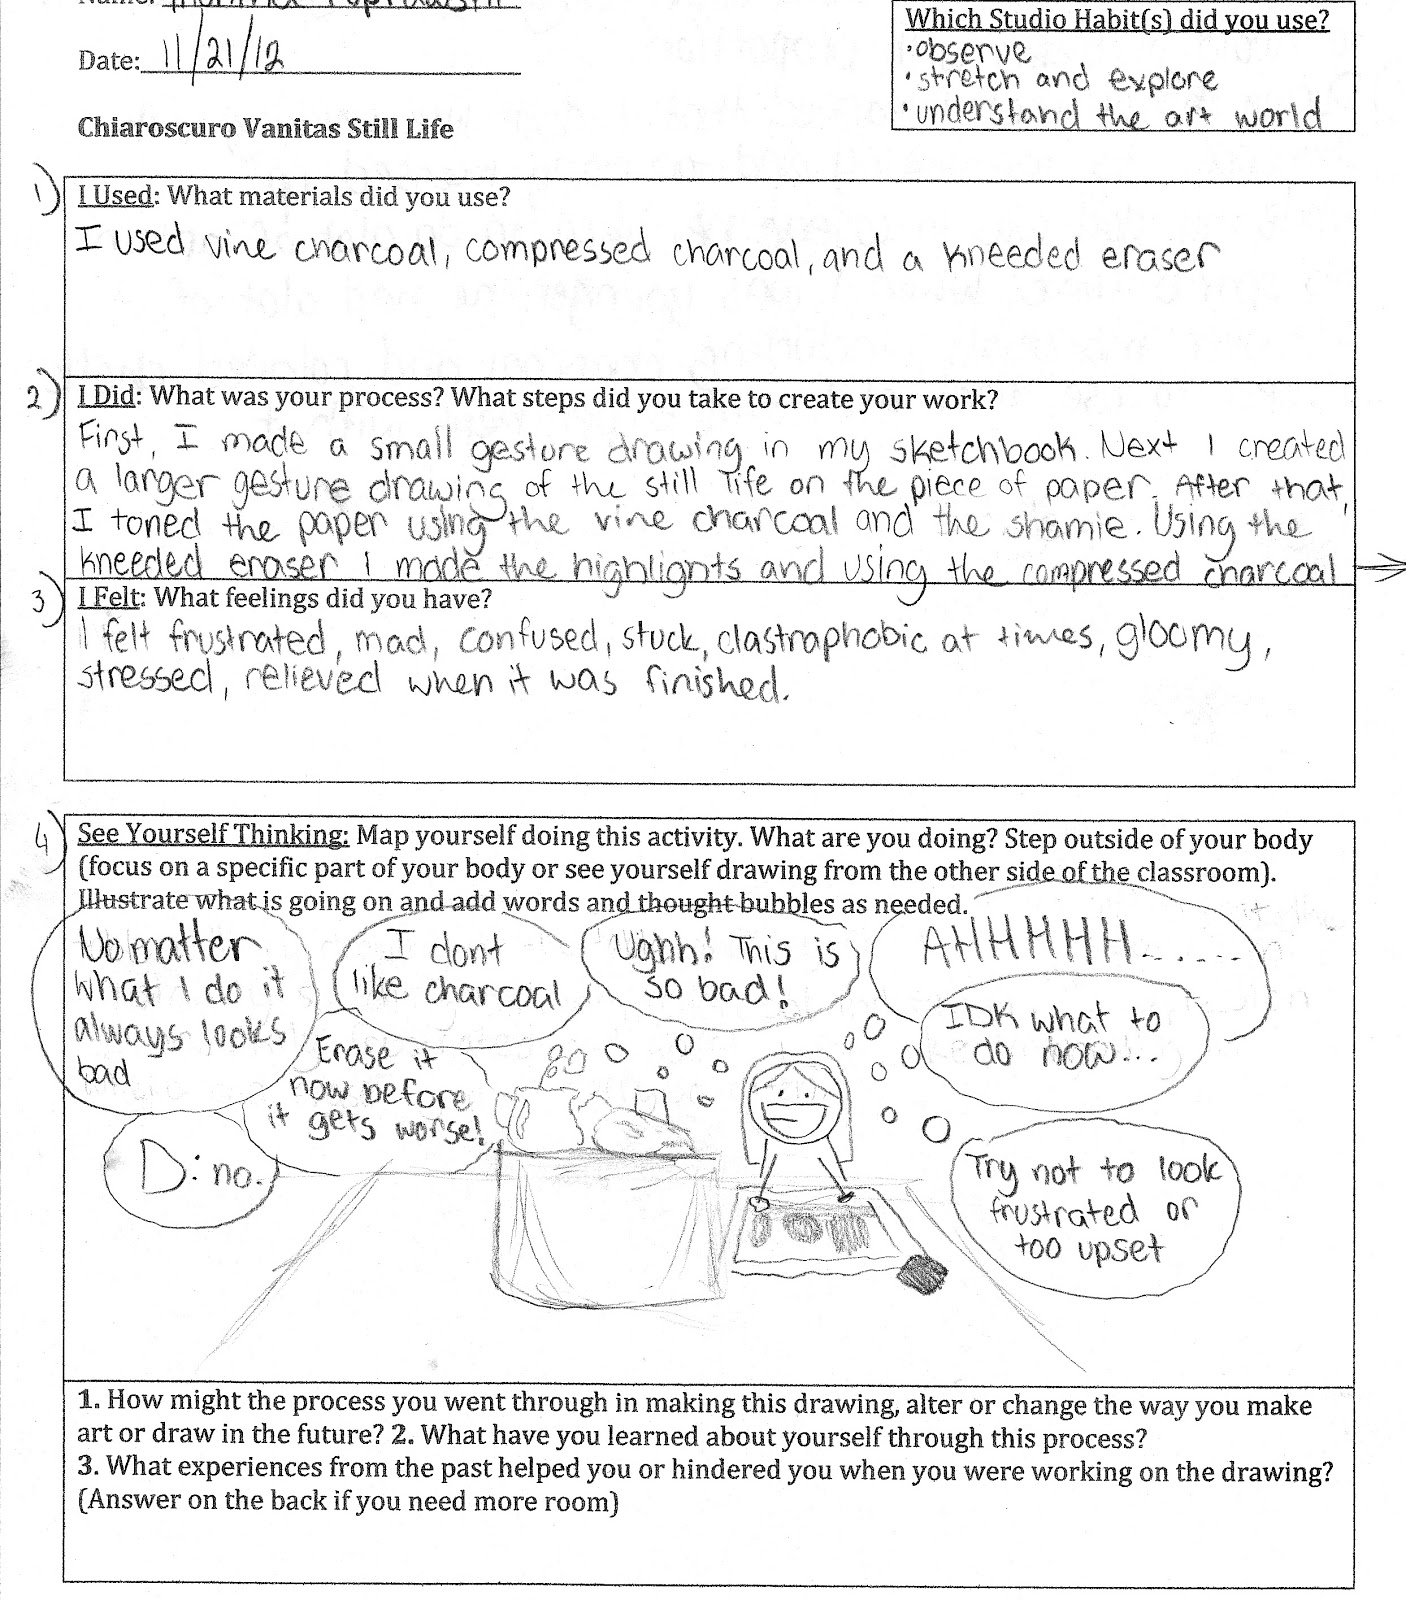 Date: 11/21/12
Chiaroscuro Vanitas Still Life
Which Studio Habit(s) did you use?
•observe
•stretch and explore
•understand the art world
1) I Used: What materials did you use?
I used vine charcoal, compressed charcoal, and a kneeded eraser
2) I Did: What was your process? What steps did you take to create your work?
First, I made a small gesture drawing in my sketchbook. Next I created
a larger gesture drawing of the still life on the piece of paper. After that,
I toned the paper using the vine charcoal and the shamie. Using the
kneeded eraser I made the highlights and using the compressed charcoal →
3) I Felt: What feelings did you have?
I felt frustrated, mad, confused, stuck, clastraphobic at times, gloomy,
stressed, relieved when it was finished.
4) See Yourself Thinking: Map yourself doing this activity. What are you doing? Step outside of your body
(focus on a specific part of your body or see yourself drawing from the other side of the classroom).
Illustrate what is going on and add words and thought bubbles as needed.
No matter
what I do it
always looks
bad
I dont
like charcoal
Ughh! This is
so bad!
AHHHHH......
IDK what to
do now...
Erase it
now before
it gets worse!
D: no.
Try not to look
frustrated or
too upset
1. How might the process you went through in making this drawing, alter or change the way you make
art or draw in the future? 2. What have you learned about yourself through this process?
3. What experiences from the past helped you or hindered you when you were working on the drawing?
(Answer on the back if you need more room)